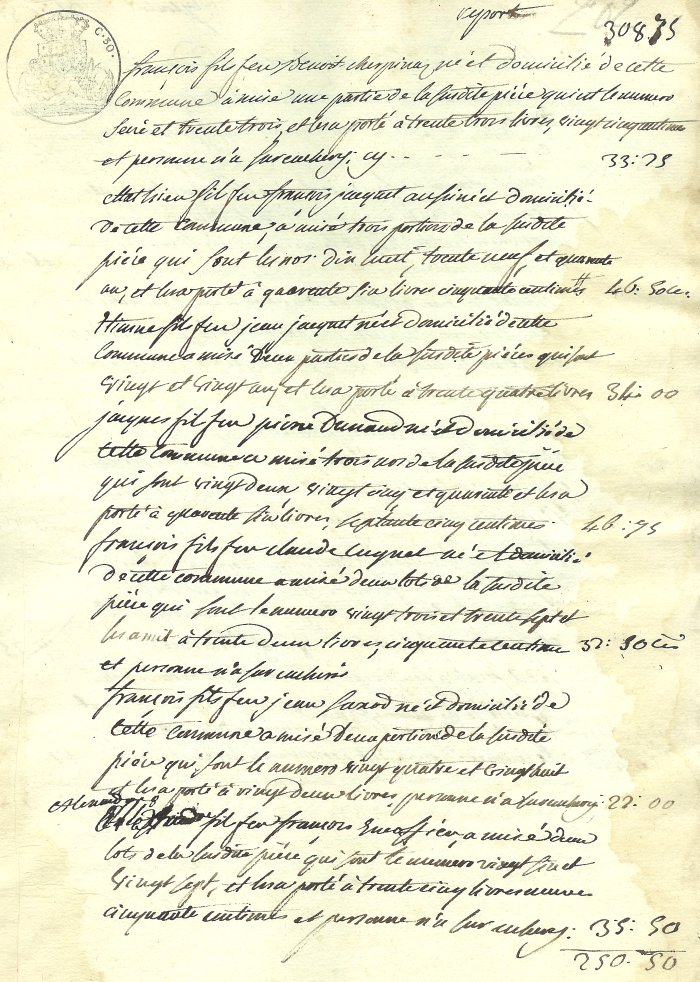 report
30875
C. 30.
françois fils feu Benoit cherpinaz né et domicilié de cette
Commune a misé une partie de la susdite piéce qui est le numero
et trente trois, et l'as porté à trente trois livres, vingt cinq centime
et personne n'a surencherÿ; cy - - - 33:25
fils feu françois jacquet aussi né et domicilié
de cette Commune, à misé trois portions de la susdite
piéce qui sont les nos. dix huit, trente neuf, et quarante
un, et l'as porté à quarente six livres cinquante centimes 46: 50 ce.
fils feu jean jacquet né et domicilié de cette
Commune a misé deux parties de la susdite piéces qui sont
vingt et vingt un, et l'as porté à trente quatre livres 34: 00
jacques fils feu pierre Dunand né et domicilié de
cette commune a misé trois nos de la susdite piéce
qui sont vingt deux vingt cinq et quarante et l'as
porté à quarente six livres, septante cinq centimes 46:75
françois fils feu claude Cugnet né et domicilié
de cette commune a misé deux lots de la susdite
piéce qui sont le numero vingt trois et trente sept et
les a mit à trente deux livres, cinquante centime 32: 50 ces
et personne n'a surencheris
françois fils feu jean né et domicilié de
cette Commune a misé deux portions de la susdite
piéce qui sont le numero vingt quatre et vingt huit
et l'as porté à vingt deux livres, personne n'a surencherÿ; 22:00
fils feu françois a misé deux
lots de la susdite piéce qui sont le numero vingt six et
vingt sept, et l'as porté à trente cinq livres neuves
cinquante centimes et personne n'a surencherÿ: 35:50
250-50